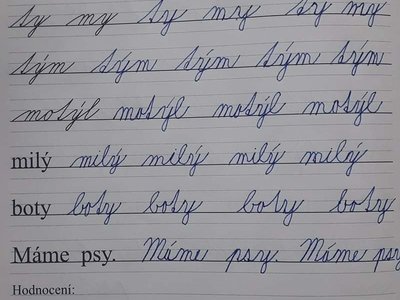 ty my ty my ty my ty my
tým tým tým tým tým
motýl motýl motýl motýl
milý milý milý milý milý
boty boty boty boty boty
Máme psy. Máme psy. Máme psy
Hodnocení: